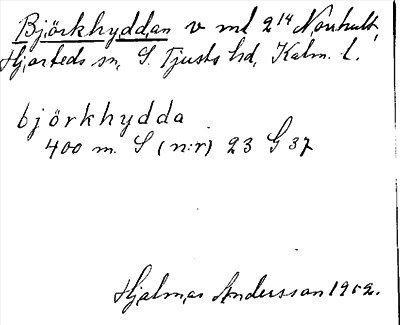 Björkhyddan v ml 2¹⁴ Norrhult,
Hjorteds sn, S. Tjusts hd, Kalm. l.
björkhydda
400 m. S (n:r) 23 G 37
Hjalmar Andersson 1952.